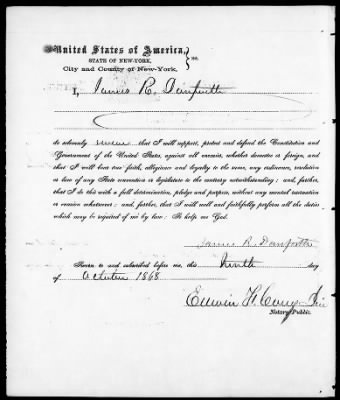 United States of America,
STATE OF NEW-YORK,
City and County of New-York, } ss.
I, James R. Danforth
do solemnly swear that I will support, protect and defend the Constitution and
Government of the United States, against all enemies, whether domestic or foreign, and
that I will bear true faith, allegiance and loyalty to the same, any ordinance, resolution
or law of any State convention or legislature to the contrary notwithstanding; and, further,
that I do this with a full determination, pledge and purpose, without any mental reservation
or evasion whatsoever; and, further, that I will well and faithfully perform all the duties
which may be required of me by law. So help me God.
James R. Danforth
Sworn to and subscribed before me, this Ninth day
of October 1868
Edwin F. Corey
Notary Public.